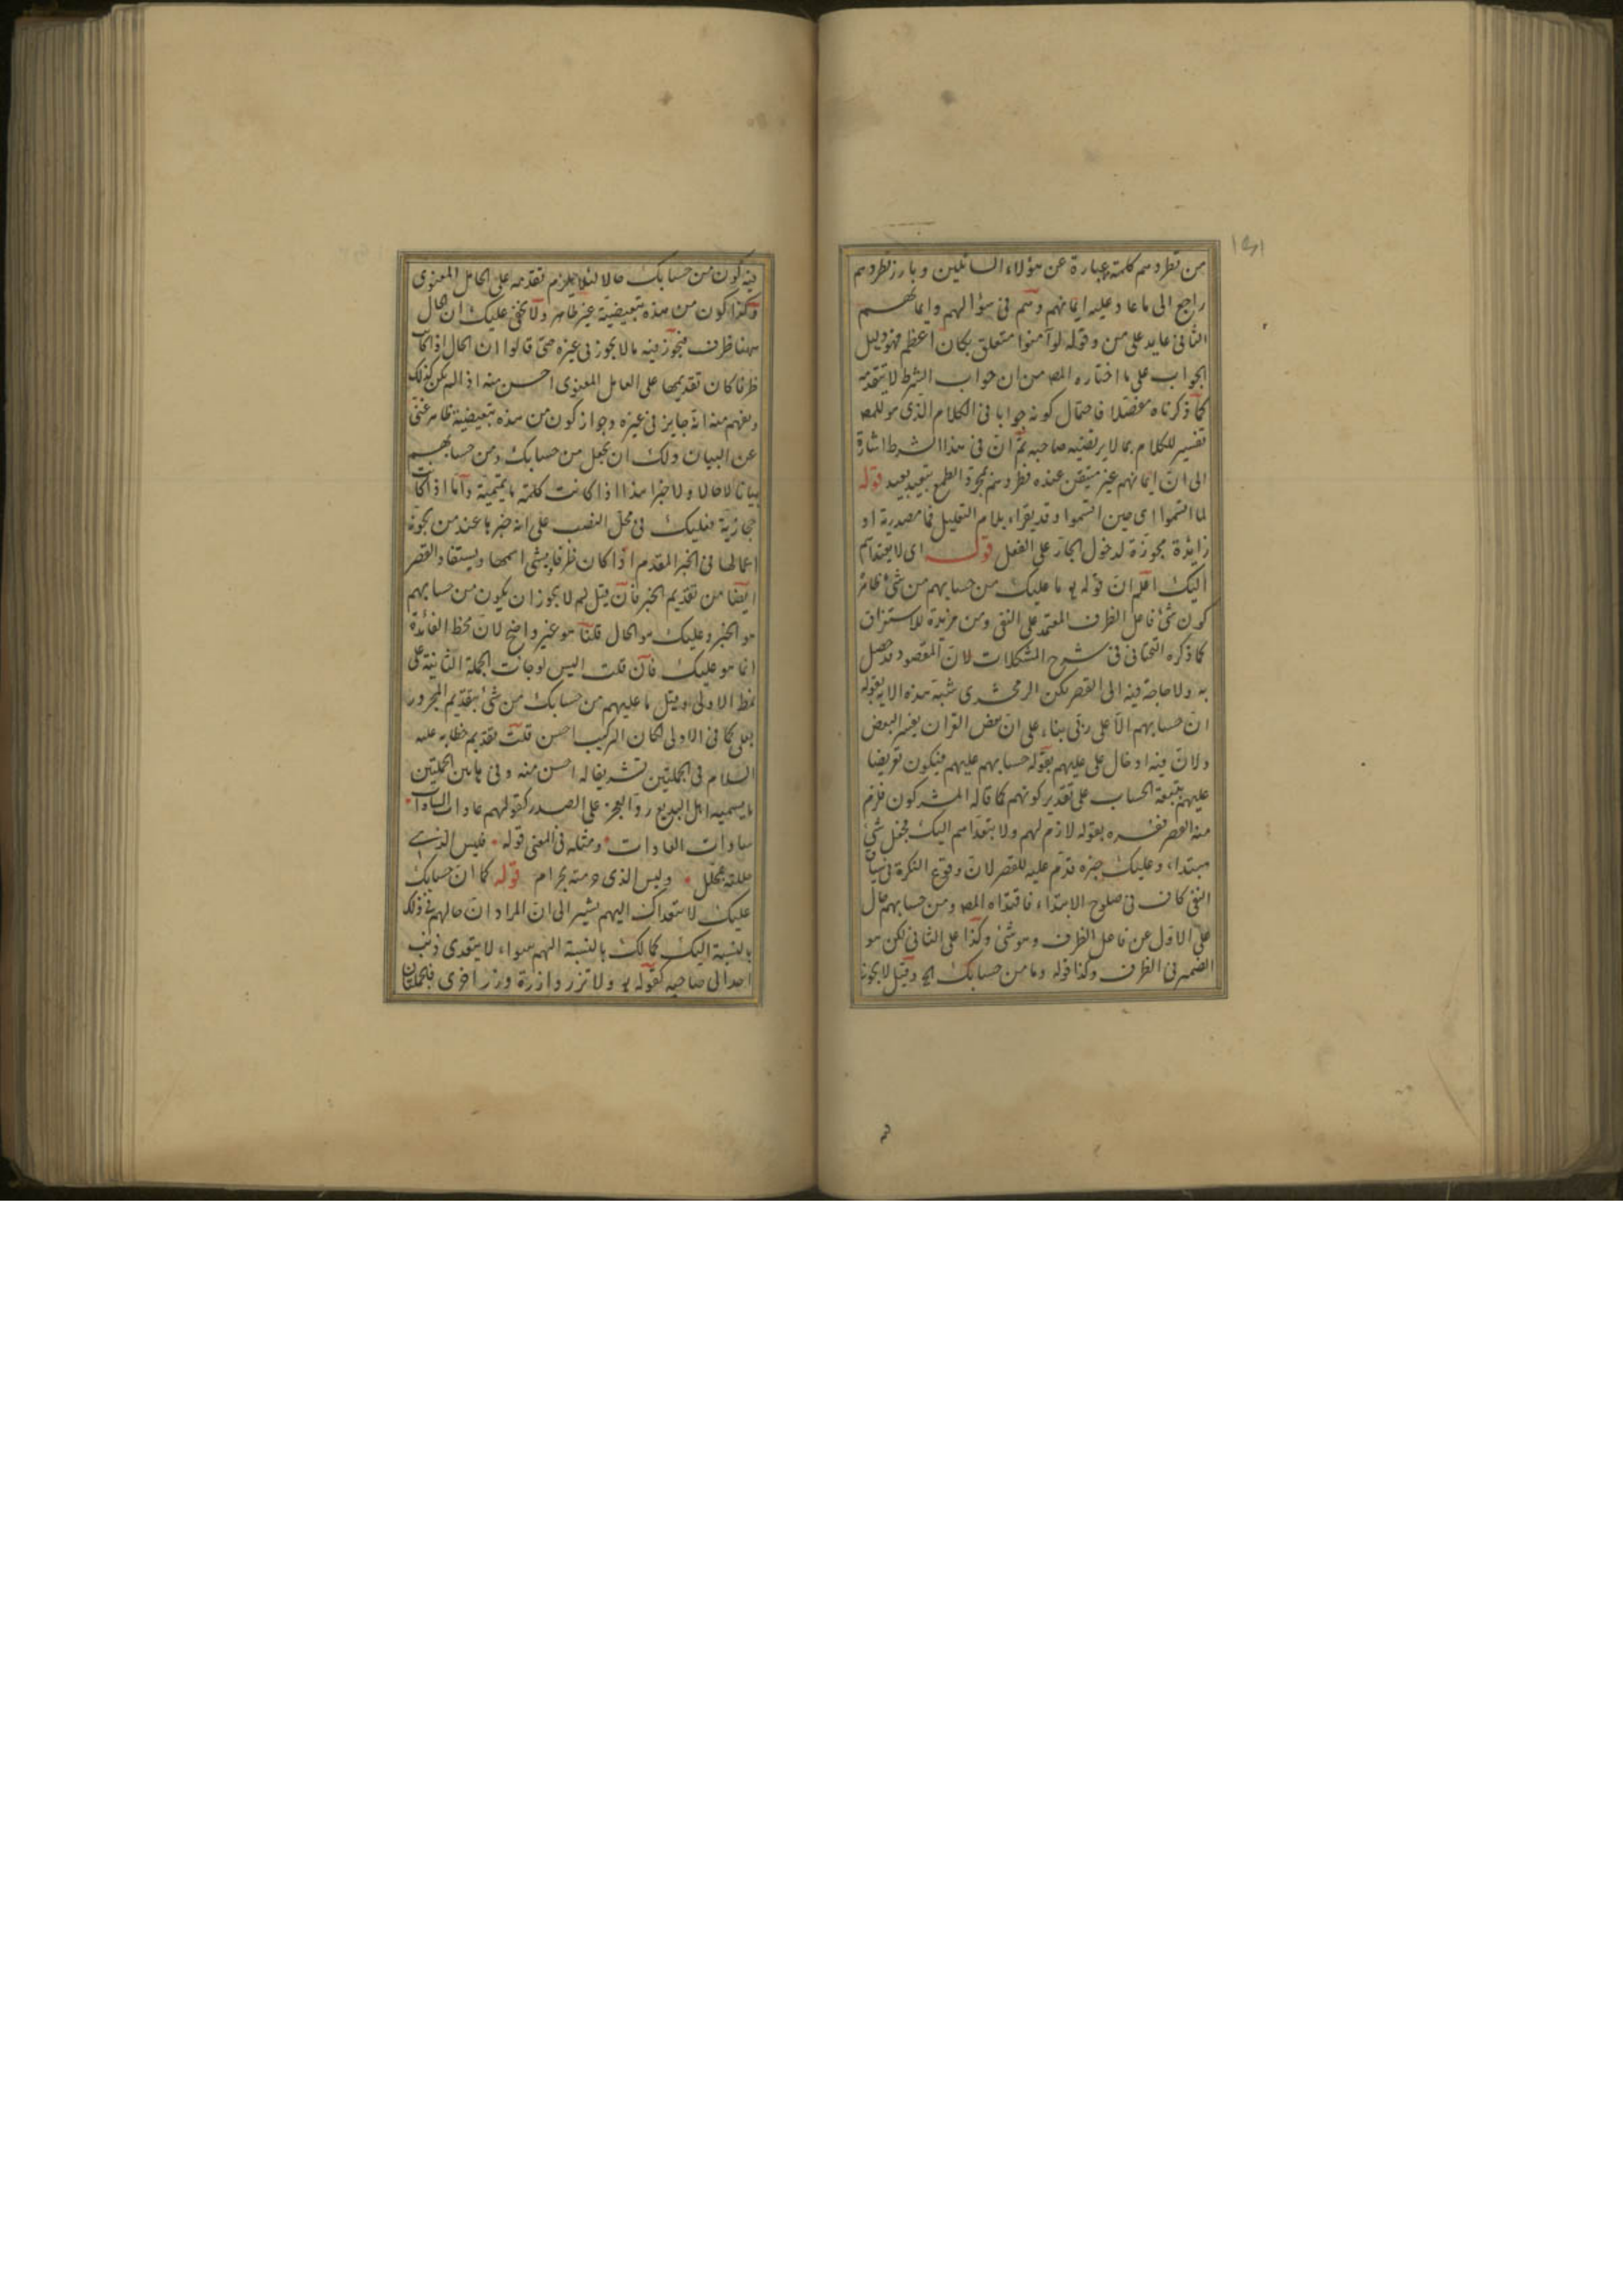 من تطردهم كلمة عبارة عن هؤلاء السائلين وبارز تطردهم
راجع الى ما عاد عليه ايمانهم وهم فى سؤالهم وايمانهم
الثانى عايد على من وقوله لو آمنوا متعلق بكان اعظم فهو دليل
الجواب على ما اختاره المص من ان جواب الشرط لا يتقدمه
كما ذكرناه مفصلا فاحتمال كونه جوابا فى الكلام الذى هو للمص
تفسير للكلام بما لا يرتضيه صاحبه ثم ان فى هذا الشرط اشارة
الى ان ايمانهم غير متيقن عنده فطردهم بمجرد الطمع بتبعيد بعيد قوله
لما اتسموا اى حين اتسموا وقد يقراء بلام التعليل فما مصدرية او
زائدة مجوزة لدخول الجار على الفعل قوله اى لا يتعداهم
اليك اعلم ان قوله تع ما عليك من حسابهم من شئ ظاهر
كون شئ فاعل الظرف المعتمد على النفى ومن مزيدة للاستغراق
كما ذكره التحتانى فى شرح المشكلات لان المقصود قد حصل
به ولا حاجة فيه الى القصر لكن الزمخشرى شبه هذه الاية بقوله
ان حسابهم الا على ربى بناء على ان بعض القران يفسر البعض
ولان فيه ادخال على عليهم بقوله حسابهم عليهم فيكون تعريضا
عليهم بتبعة الحساب على تقدير كونهم كما قاله المشركون فلزم
منه القصر ففسره بقوله لازم لهم ولا يتعداهم اليك فجعل شئ
مبتداء وعليك خبره قدم عليه للقصر لان وقوع النكرة فى سياق
النفى كاف فى صلوح الابتداء فاقتداه المص ومن حسابهم حال
على الاول عن فاعل الظرف وهو شئ وكذا على الثانى لكن هو
الضمير فى الظرف وكذا قوله وما من حسابك الخ وقيل لا يجوز
فيه كون من حسابك حالا لئلا يلزم تقدمه على العامل المعنوى
وكذا كون من هذه تبعيضية غير ظاهر ولا يخفى عليك ان الحال
ههنا ظرف فيجوز فيه ما لا يجوز فى غيره حتى قالوا ان الحال اذا كانت
ظرفا كان تقديمها على العامل المعنوى احسن منه اذا لم يكن كذلك
ويفهم منه انه جايز فى غيره وجواز كون من هذه تبعيضية ظاهر غنى
عن البيان ولك ان تجعل من حسابك ومن حسابهم
بيانا لا حالا ولا خبرا هذا اذا كانت كلمة ما تميمية واما اذا كانت
حجازية فعليك فى محل النصب على انه خبر ما عند من يجوز
اعمالها فى الخبر المقدم اذا كان ظرفا وشئ اسمها ويستفاد القصر
ايضا من تقديم الخبر فان قيل لم لا يجوز ان يكون من حسابهم
هو الخبر وعليك هو الحال قلنا هو غير واضح لان محط الفائدة
انما هو عليك فان قلت اليس لو جاءت الجملة الثانية على
نمط الاولى وقيل ما عليهم من حسابك من شئ بتقديم المجرور
بعلى كما فى الاولى لكان التركيب احسن قلت تقديم خطابه عليه
السلام فى الجملتين تشريفا له احسن منه وفى هاتين الجملتين
ما يسميه اهل البديع رد العجز على الصدر كقولهم عادات السادات
سادات العادات ومثله فى المعنى قوله فليس الذى
حللته بمحلل وليس الذى حرمته بحرام قوله كما ان حسابك
عليك لا يتعداك اليهم يشير الى ان المراد ان حالهم فى ذلك
بالنسبة اليك كحالك بالنسبة اليهم سواء لا يتعدى ذنب
احد الى صاحبه كقوله تع ولا تزر وازرة وزر اخرى فالجملتان